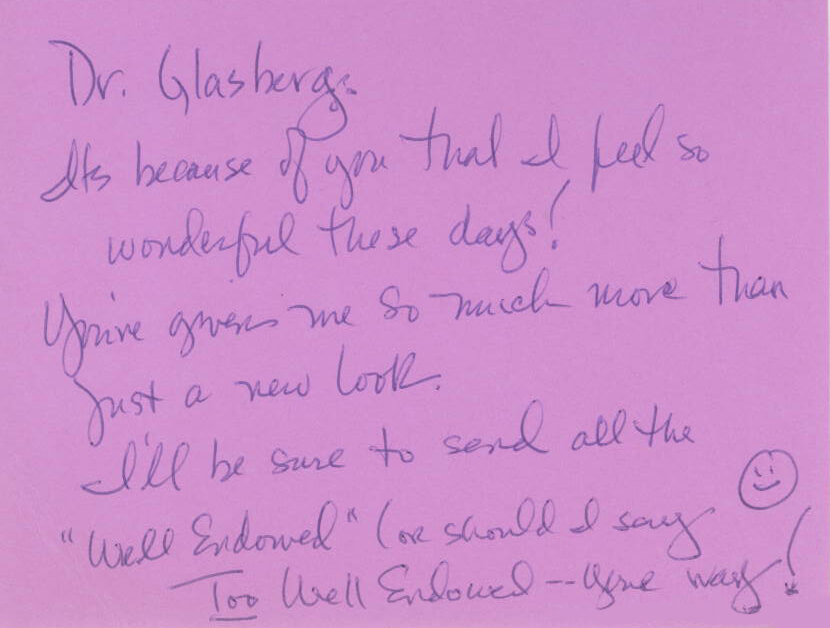 Dr. Glasberg:
Its because of you that I feel so
wonderful these days!
You've given me so much more than
just a new look.
I'll be sure to send all the
"Well Endowed" (or should I say
Too Well Endowed -- your way!